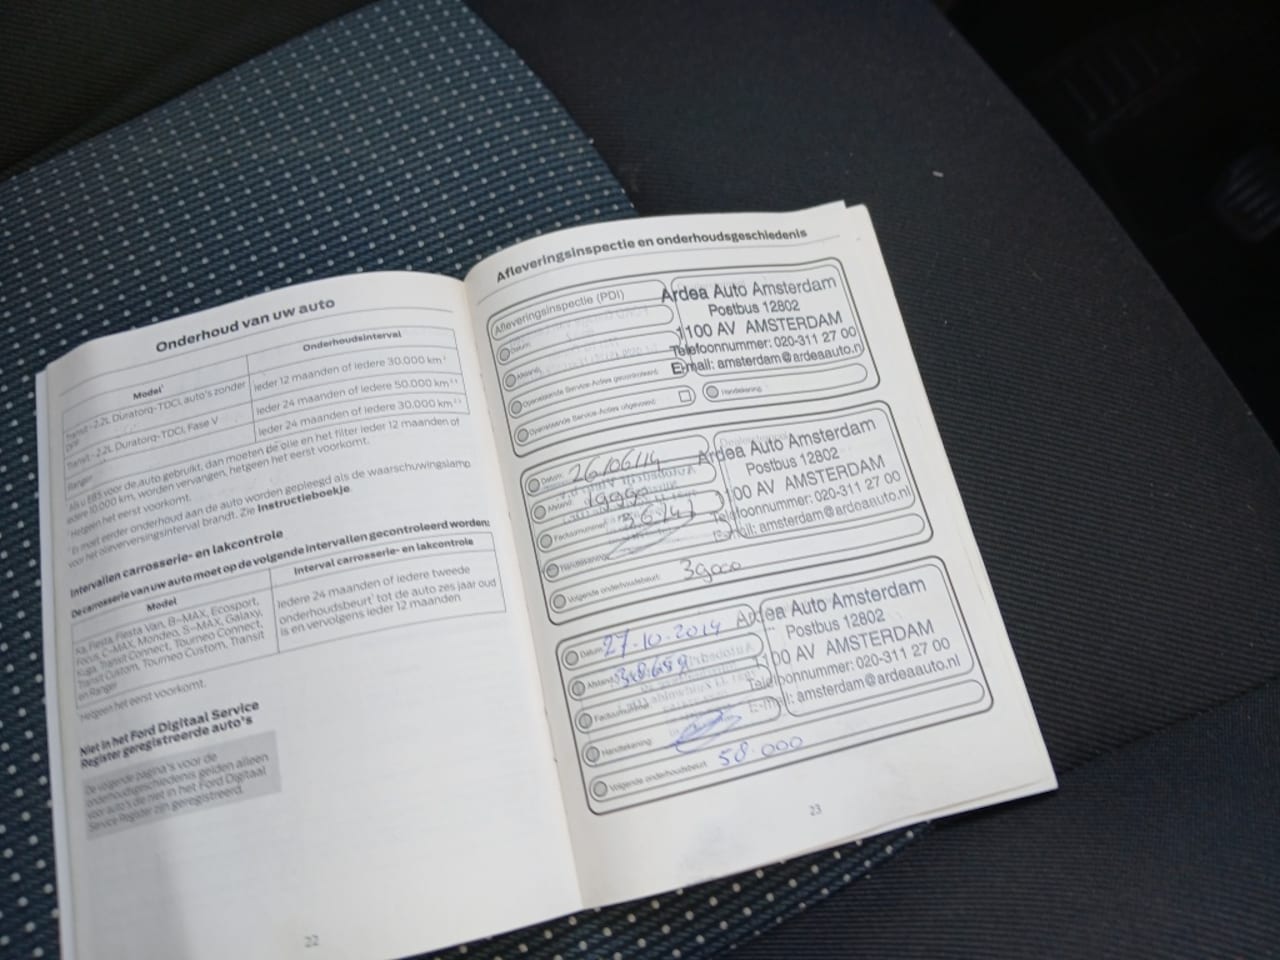 Onderhoud van uw auto
Model¹
Onderhoudsinterval
Transit - 2.2L Duratorq-TDCi, auto's zonder DPF
Ieder 12 maanden of iedere 30.000 km
Transit - 2.2L Duratorq-TDCi, Fase V
Ieder 24 maanden of iedere 50.000 km
Ranger
Ieder 24 maanden of iedere 30.000 km
Als u E85 voor de auto gebruikt, dan moeten de olie en het filter ieder 12 maanden of
iedere 10.000 km, worden vervangen, hetgeen het eerst voorkomt.
Hetgeen het eerst voorkomt.
Er moet eerder onderhoud aan de auto worden gepleegd als de waarschuwingslamp
voor het olieverversingsinterval brandt. Zie Instructieboekje
Intervallen carrosserie- en lakcontrole
De carrosserie van uw auto moet op de volgende intervallen gecontroleerd worden:
Model
Interval carrosserie- en lakcontrole
Ka, Fiesta, Fiesta Van, B-MAX, Ecosport,
Focus, C-MAX, Mondeo, S-MAX, Galaxy,
Kuga, Transit Connect, Tourneo Connect,
Transit Custom, Tourneo Custom, Transit
en Ranger
Iedere 24 maanden of iedere tweede
onderhoudsbeurt tot de auto zes jaar oud
is en vervolgens ieder 12 maanden
Hetgeen het eerst voorkomt.
Niet in het Ford Digitaal Service
Register geregistreerde auto's
De volgende pagina's voor de
onderhoudsgeschiedenis gelden alleen
voor auto's die niet in het Ford Digitaal
Service Register zijn geregistreerd.
22
Afleveringsinspectie en onderhoudsgeschiedenis
Afleveringsinspectie (PDI)
Datum:
Afstand:
Openstaande Service-Acties gecontroleerd:
Openstaande Service-Acties uitgevoerd:
Handtekening:
Ardea Auto Amsterdam
Postbus 12802
1100 AV AMSTERDAM
Telefoonnummer: 020-311 27 00
E-mail: amsterdam@ardeaauto.nl
Datum: 26/06/14
Afstand:
Factuurnummer:
Handtekening:
Volgende onderhoudsbeurt: 39000
Ardea Auto Amsterdam
Postbus 12802
1100 AV AMSTERDAM
Telefoonnummer: 020-311 27 00
E-mail: amsterdam@ardeaauto.nl
Datum: 27-10-2014
Afstand: 38.659
Factuurnummer:
Handtekening:
Volgende onderhoudsbeurt: 58.000
Ardea Auto Amsterdam
Postbus 12802
1100 AV AMSTERDAM
Telefoonnummer: 020-311 27 00
E-mail: amsterdam@ardeaauto.nl
23